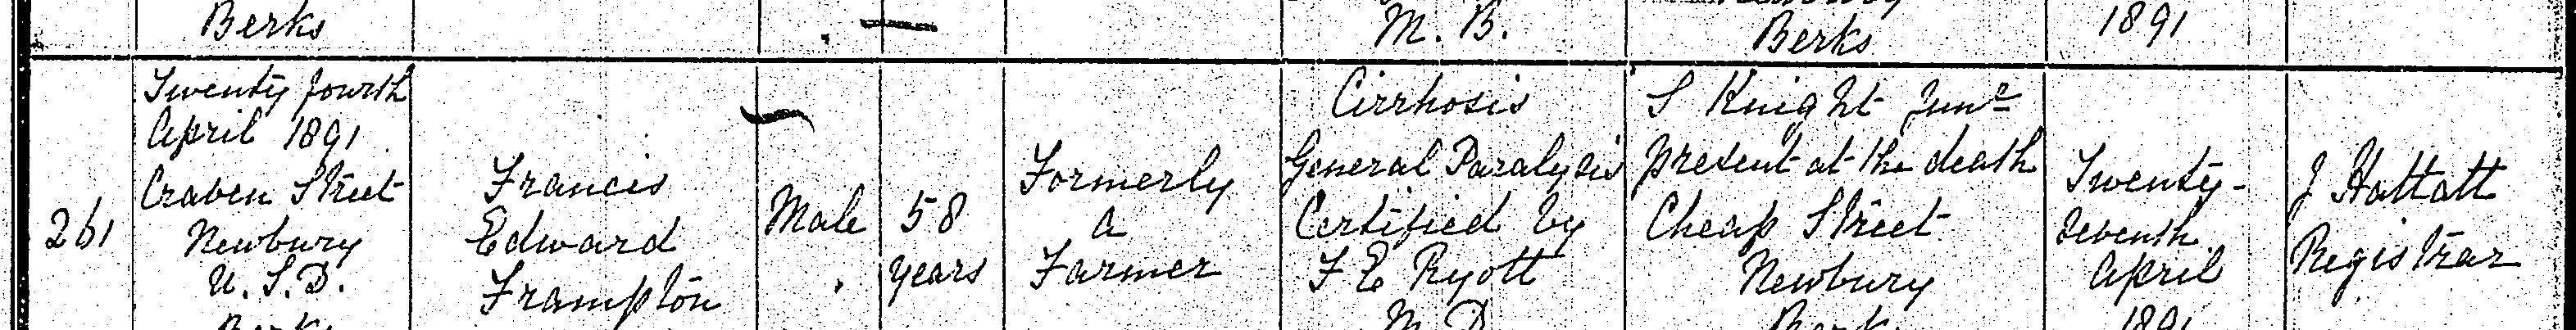 Berks
M. B.
Berks
1891
261
Twenty fourth
April 1891
Craven Street
Newbury
U. S. D.
Berks
Francis
Edward
Frampton
Male
58
years
Formerly
a
Farmer
Cirrhosis
General Paralysis
Certified by
F E Ryott
M. D.
S Knight Junr
present at the death
Cheap Street
Newbury
Berks
Twenty-
seventh
April
1891
J Hattatt
Registrar